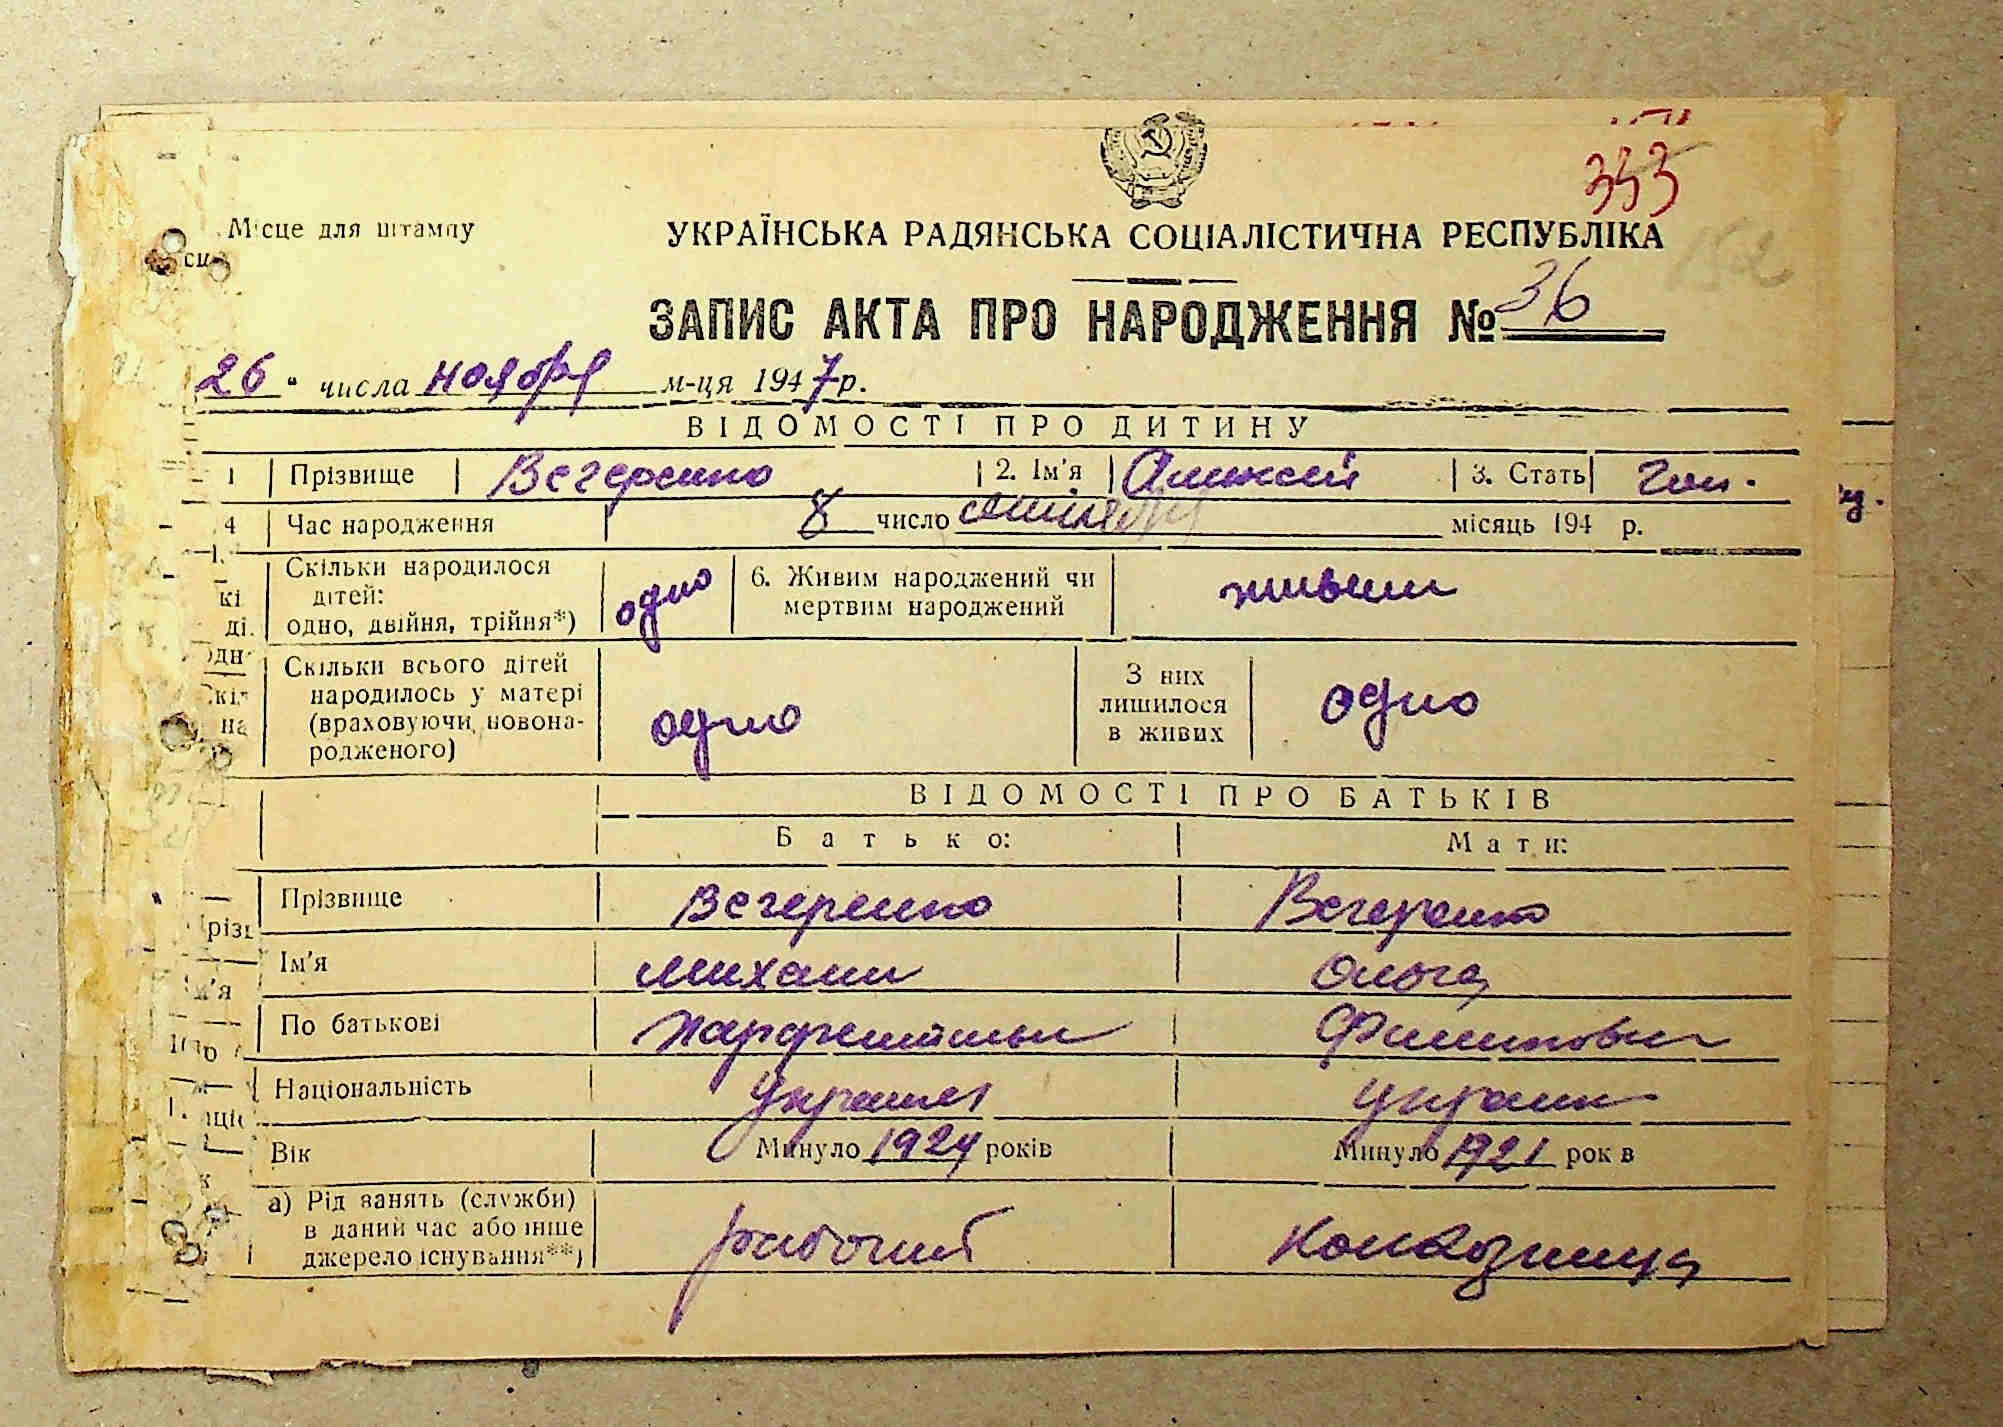 333
Місце для штампу
УКРАЇНСЬКА РАДЯНСЬКА СОЦІАЛІСТИЧНА РЕСПУБЛІКА
152
ЗАПИС АКТА ПРО НАРОДЖЕННЯ № 36
26 числа ноября м-ця 1947 р.
ВІДОМОСТІ ПРО ДИТИНУ
1 Прізвище Вегеренко 2. Ім'я Алексей 3. Стать
4 Час народження 8 число сентября місяць 194 р.
Скільки народилося дітей: одно, двійня, трійня*) одно 6. Живим народжений чи мертвим народжений живым
Скільки всього дітей народилось у матері (враховуючи новонародженого) одно З них лишилося в живих одно
ВІДОМОСТІ ПРО БАТЬКІВ
Батько: Мати:
Прізвище Вегеренко Вегеренко
Ім'я Михаил Ольга
По батькові
Національність
Вік Минуло 1924 років Минуло 1921 рок в
а) Рід занять (служби) в даний час або інше джерело існування**) рабочий Колхозница